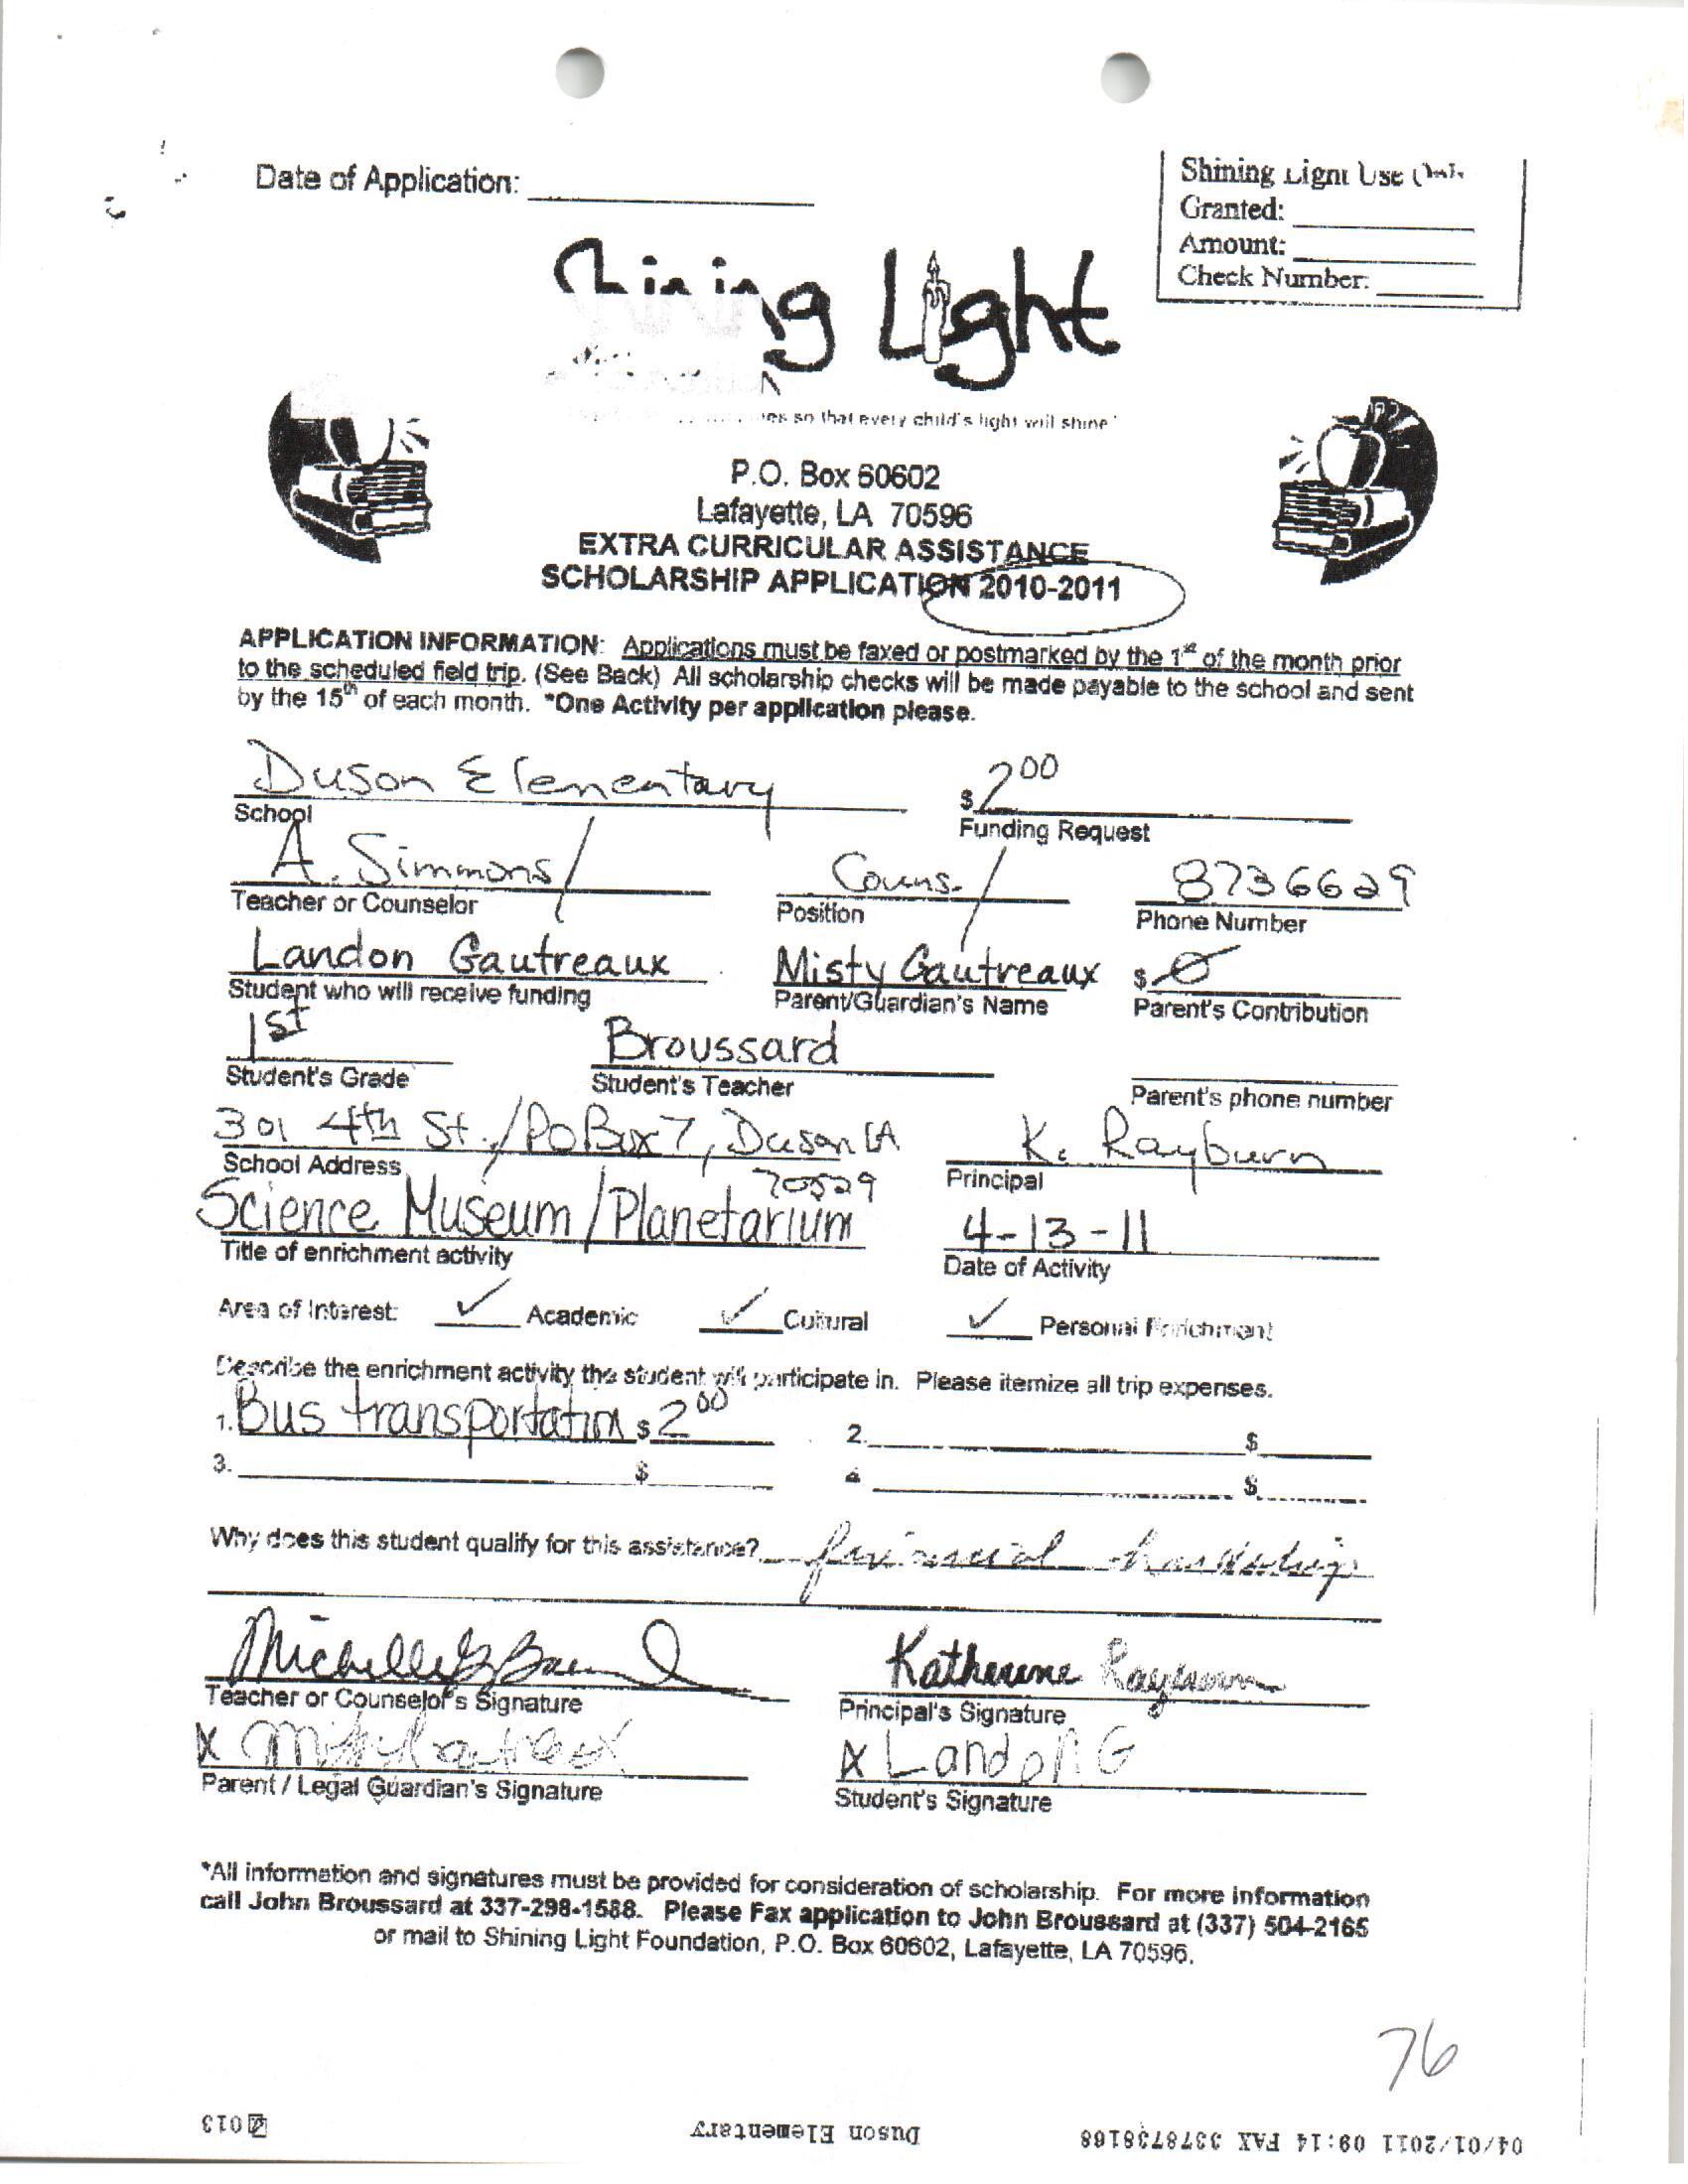 Date of Application:
Shining Light Use
Granted:
Amount:
Check Number:
Shining Light
so that every child's light will shine"
P.O. Box 60602
Lafayette, LA 70596
EXTRA CURRICULAR ASSISTANCE
SCHOLARSHIP APPLICATION 2010-2011
APPLICATION INFORMATION: Applications must be faxed or postmarked by the 1st of the month prior
to the scheduled field trip. (See Back) All scholarship checks will be made payable to the school and sent
by the 15th of each month. *One Activity per application please.
Duson Elementary $ 2.00
School Funding Request
A. Simmons/ Couns./ 8736629
Teacher or Counselor Position Phone Number
Landon Gautreaux Misty Gautreaux $ 0
Student who will receive funding Parent/Guardian's Name Parent's Contribution
1st Broussard
Student's Grade Student's Teacher Parent's phone number
301 4th St./PO Box 7, Duson LA 70529 K. Rayburn
School Address Principal
Science Museum/Planetarium 4-13-11
Title of enrichment activity Date of Activity
Area of Interest: ✓ Academic ✓ Cultural ✓ Personal Enrichment
Describe the enrichment activity the student will participate in. Please itemize all trip expenses.
1. Bus transportation $ 2.00 2. $
3. $ 4 $
Why does this student qualify for this assistance? financial hardship
Michelle Katherine Rayburn
Teacher or Counselor's Signature Principal's Signature
X Misty Gautreaux X Landon G
Parent / Legal Guardian's Signature Student's Signature
*All information and signatures must be provided for consideration of scholarship. For more information
call John Broussard at 337-298-1588. Please Fax application to John Broussard at (337) 504-2165
or mail to Shining Light Foundation, P.O. Box 60602, Lafayette, LA 70596.
76
04/01/2011 09:14 FAX 3378738168 Duson Elementary 013